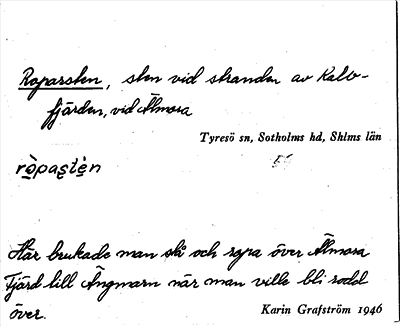 Roparsten, sten vid stranden av Kalv-
fjärden, vid Älmora
Tyresö sn, Sotholms hd, Sthlms län
ròpastèn
Här brukade man stå och ropa över Älmora
Fjärd till Ängmarn när man ville bli rodd
över.
Karin Grafström 1946